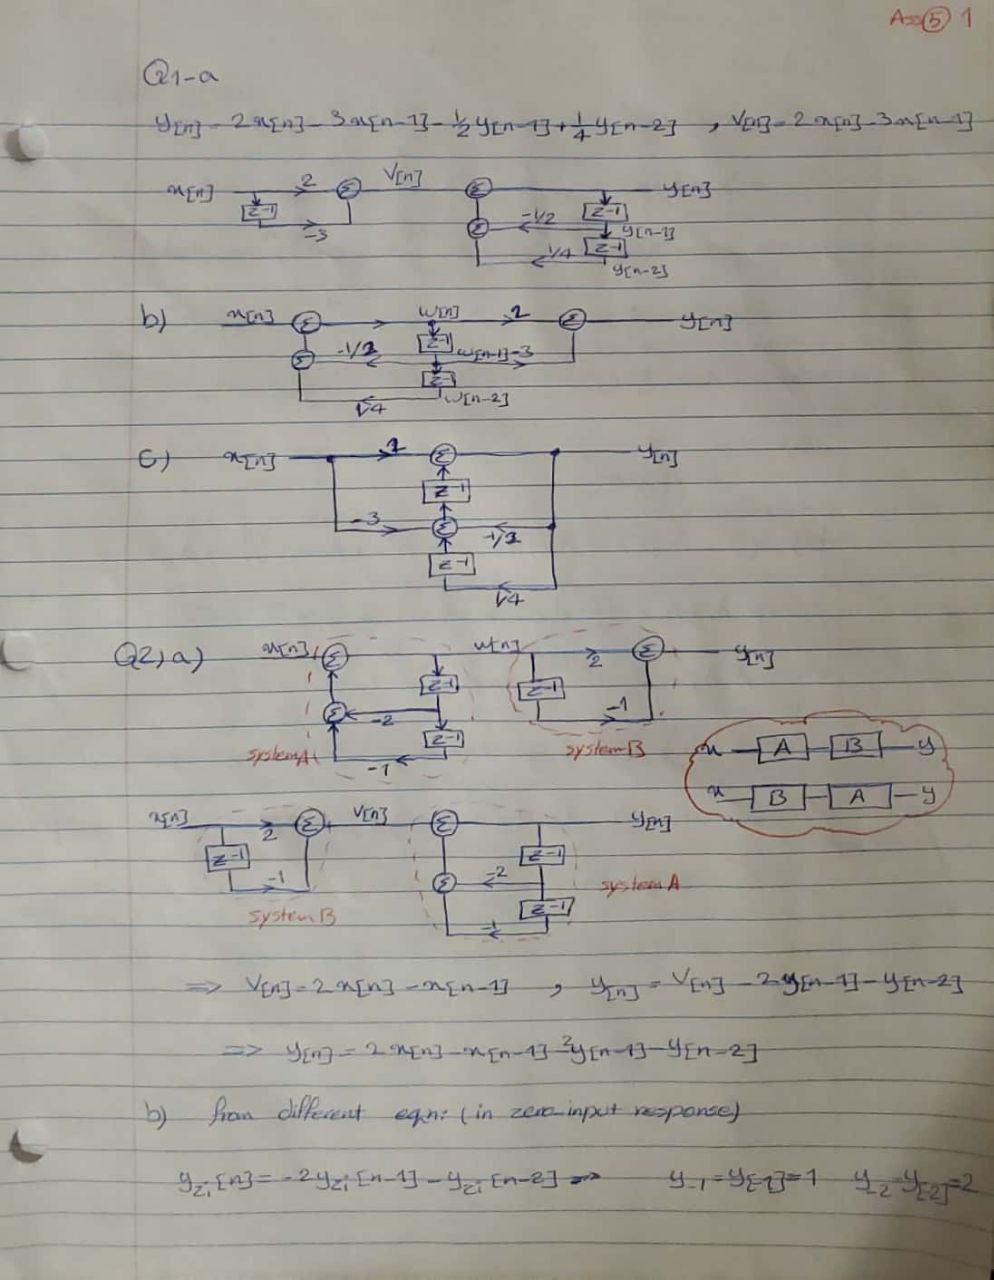 Ass 5 1
Q1-a
y[n] = 2x[n] - 3x[n-1] - 1/2 y[n-1] + 1/4 y[n-2] , V[n] = 2x[n] - 3x[n-1]
x[n] 2 Σ V[n] Σ y[n]
z-1 z-1
-3 Σ -1/2 y[n-1]
1/4 z-1
y[n-2]
b) x[n] Σ w[n] 2 Σ y[n]
z-1
Σ -1/2 w[n-1] -3
z-1
1/4 w[n-2]
c) x[n] 2 Σ y[n]
z-1
-3 Σ -1/2
z-1
1/4
Q2) a) x[n] Σ w[n] 2 Σ y[n]
z-1 z-1
Σ -2 -1
z-1
system A -1 system B
x A B y
x B A y
x[n] 2 Σ V[n] Σ y[n]
z-1 z-1
-1 Σ -2 system A
system B z-1
-1
=> V[n] = 2x[n] - x[n-1] , y[n] = V[n] - 2y[n-1] - y[n-2]
=> y[n] = 2x[n] - x[n-1] - 2y[n-1] - y[n-2]
b) from different eqn: (in zero-input response)
yzi[n] = -2yzi[n-1] - yzi[n-2] => y-1 = y[-1] = 1 y-2 = y[-2] = 2